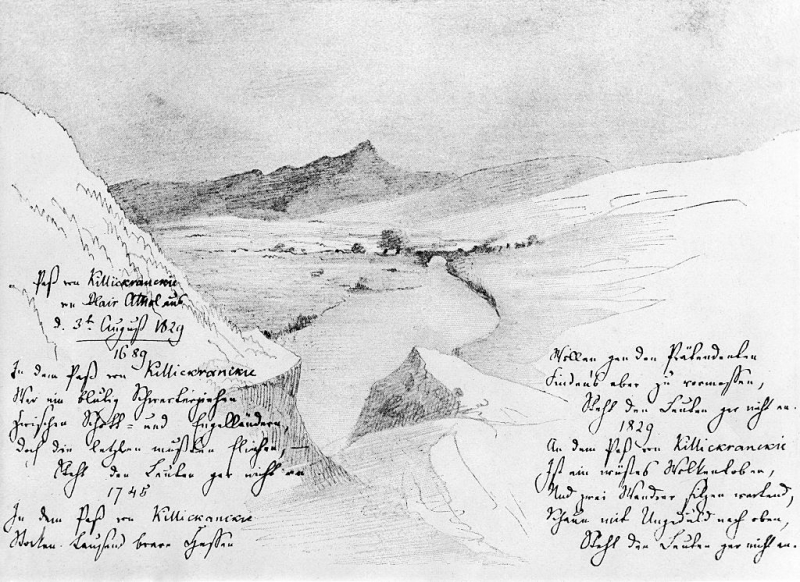 Paß von Killickranckie
von Blair Athol aus
d. 3t August 1829
1689
In dem Paß von Killickranckie
War ein blutig Schwerterziehen
Zwischen Schott= und Engelländern,
Doch die letzten mußten fliehen, —
Steht den Leuten gar nicht an
1745
In dem Paß von Killickranckie
Stocken tausend brave Hessen
Wollen gen den Prätendenten
Finden's aber zu vermessen,
Steht den Leuten gar nicht an.
1829
In dem Paß von Killickranckie
Ist ein wüstes Wolkentoben,
Und zwei Wandrer sitzen wartend,
Schaun mit Ungeduld nach oben,
Steht den Leuten gar nicht an.